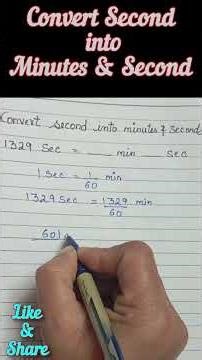 Convert Second
into
Minutes & Second
Convert second into minutes & second
1329 Sec = ___ min ___ sec
1 Sec = 1/60 min
1329 Sec = 1329/60 min
601
Like
&
Share